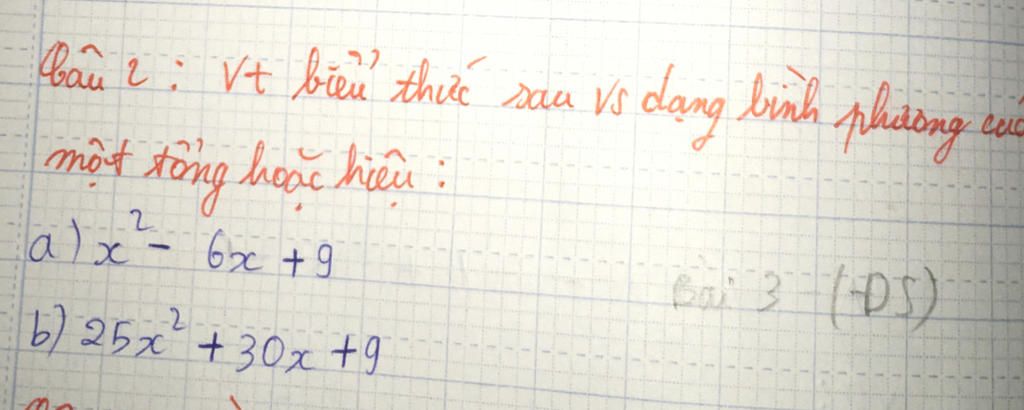 Câu 2 : Vt biểu thức sau vs dạng bình phương của
một tổng hoặc hiệu :
a) x² - 6x + 9
Bài 3 (ĐS)
b) 25x² + 30x + 9